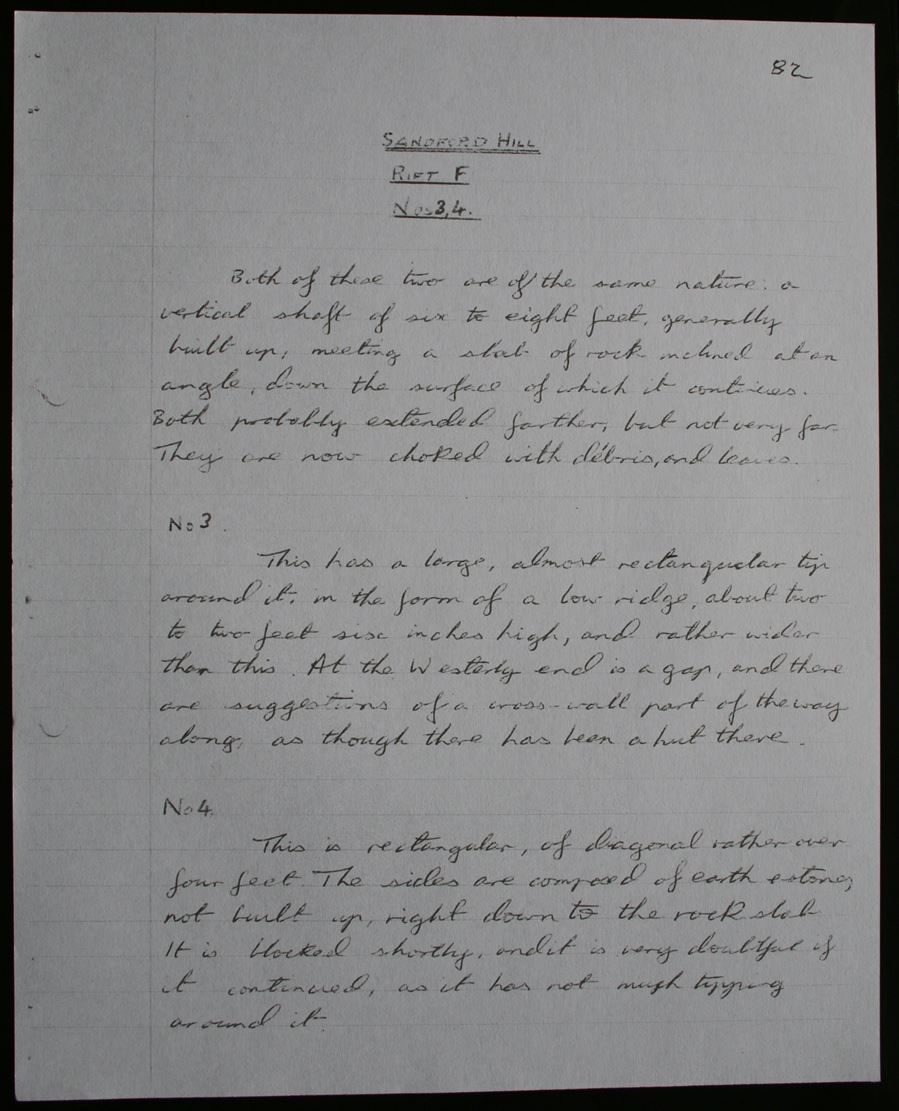 82
SANDFORD HILL
RIFT F
Nos 3,4.
Both of these two are of the same nature: a
vertical shaft of six to eight feet, generally
built up, meeting a slab of rock inclined at an
angle, down the surface of which it continues.
Both probably extended farther, but not very far.
They are now choked with débris, and leaves.
No 3.
This has a large, almost rectangular tip
around it, in the form of a low ridge, about two
to two feet six inches high, and rather wider
than this. At the Westerly end is a gap, and there
are suggestions of a cross-wall part of the way
along, as though there has been a hut there.
No 4.
This is rectangular, of diagonal rather over
four feet. The sides are composed of earth & stones,
not built up, right down to the rock slab
It is blocked shortly, and it is very doubtful if
it continued, as it has not much tipping
around it.